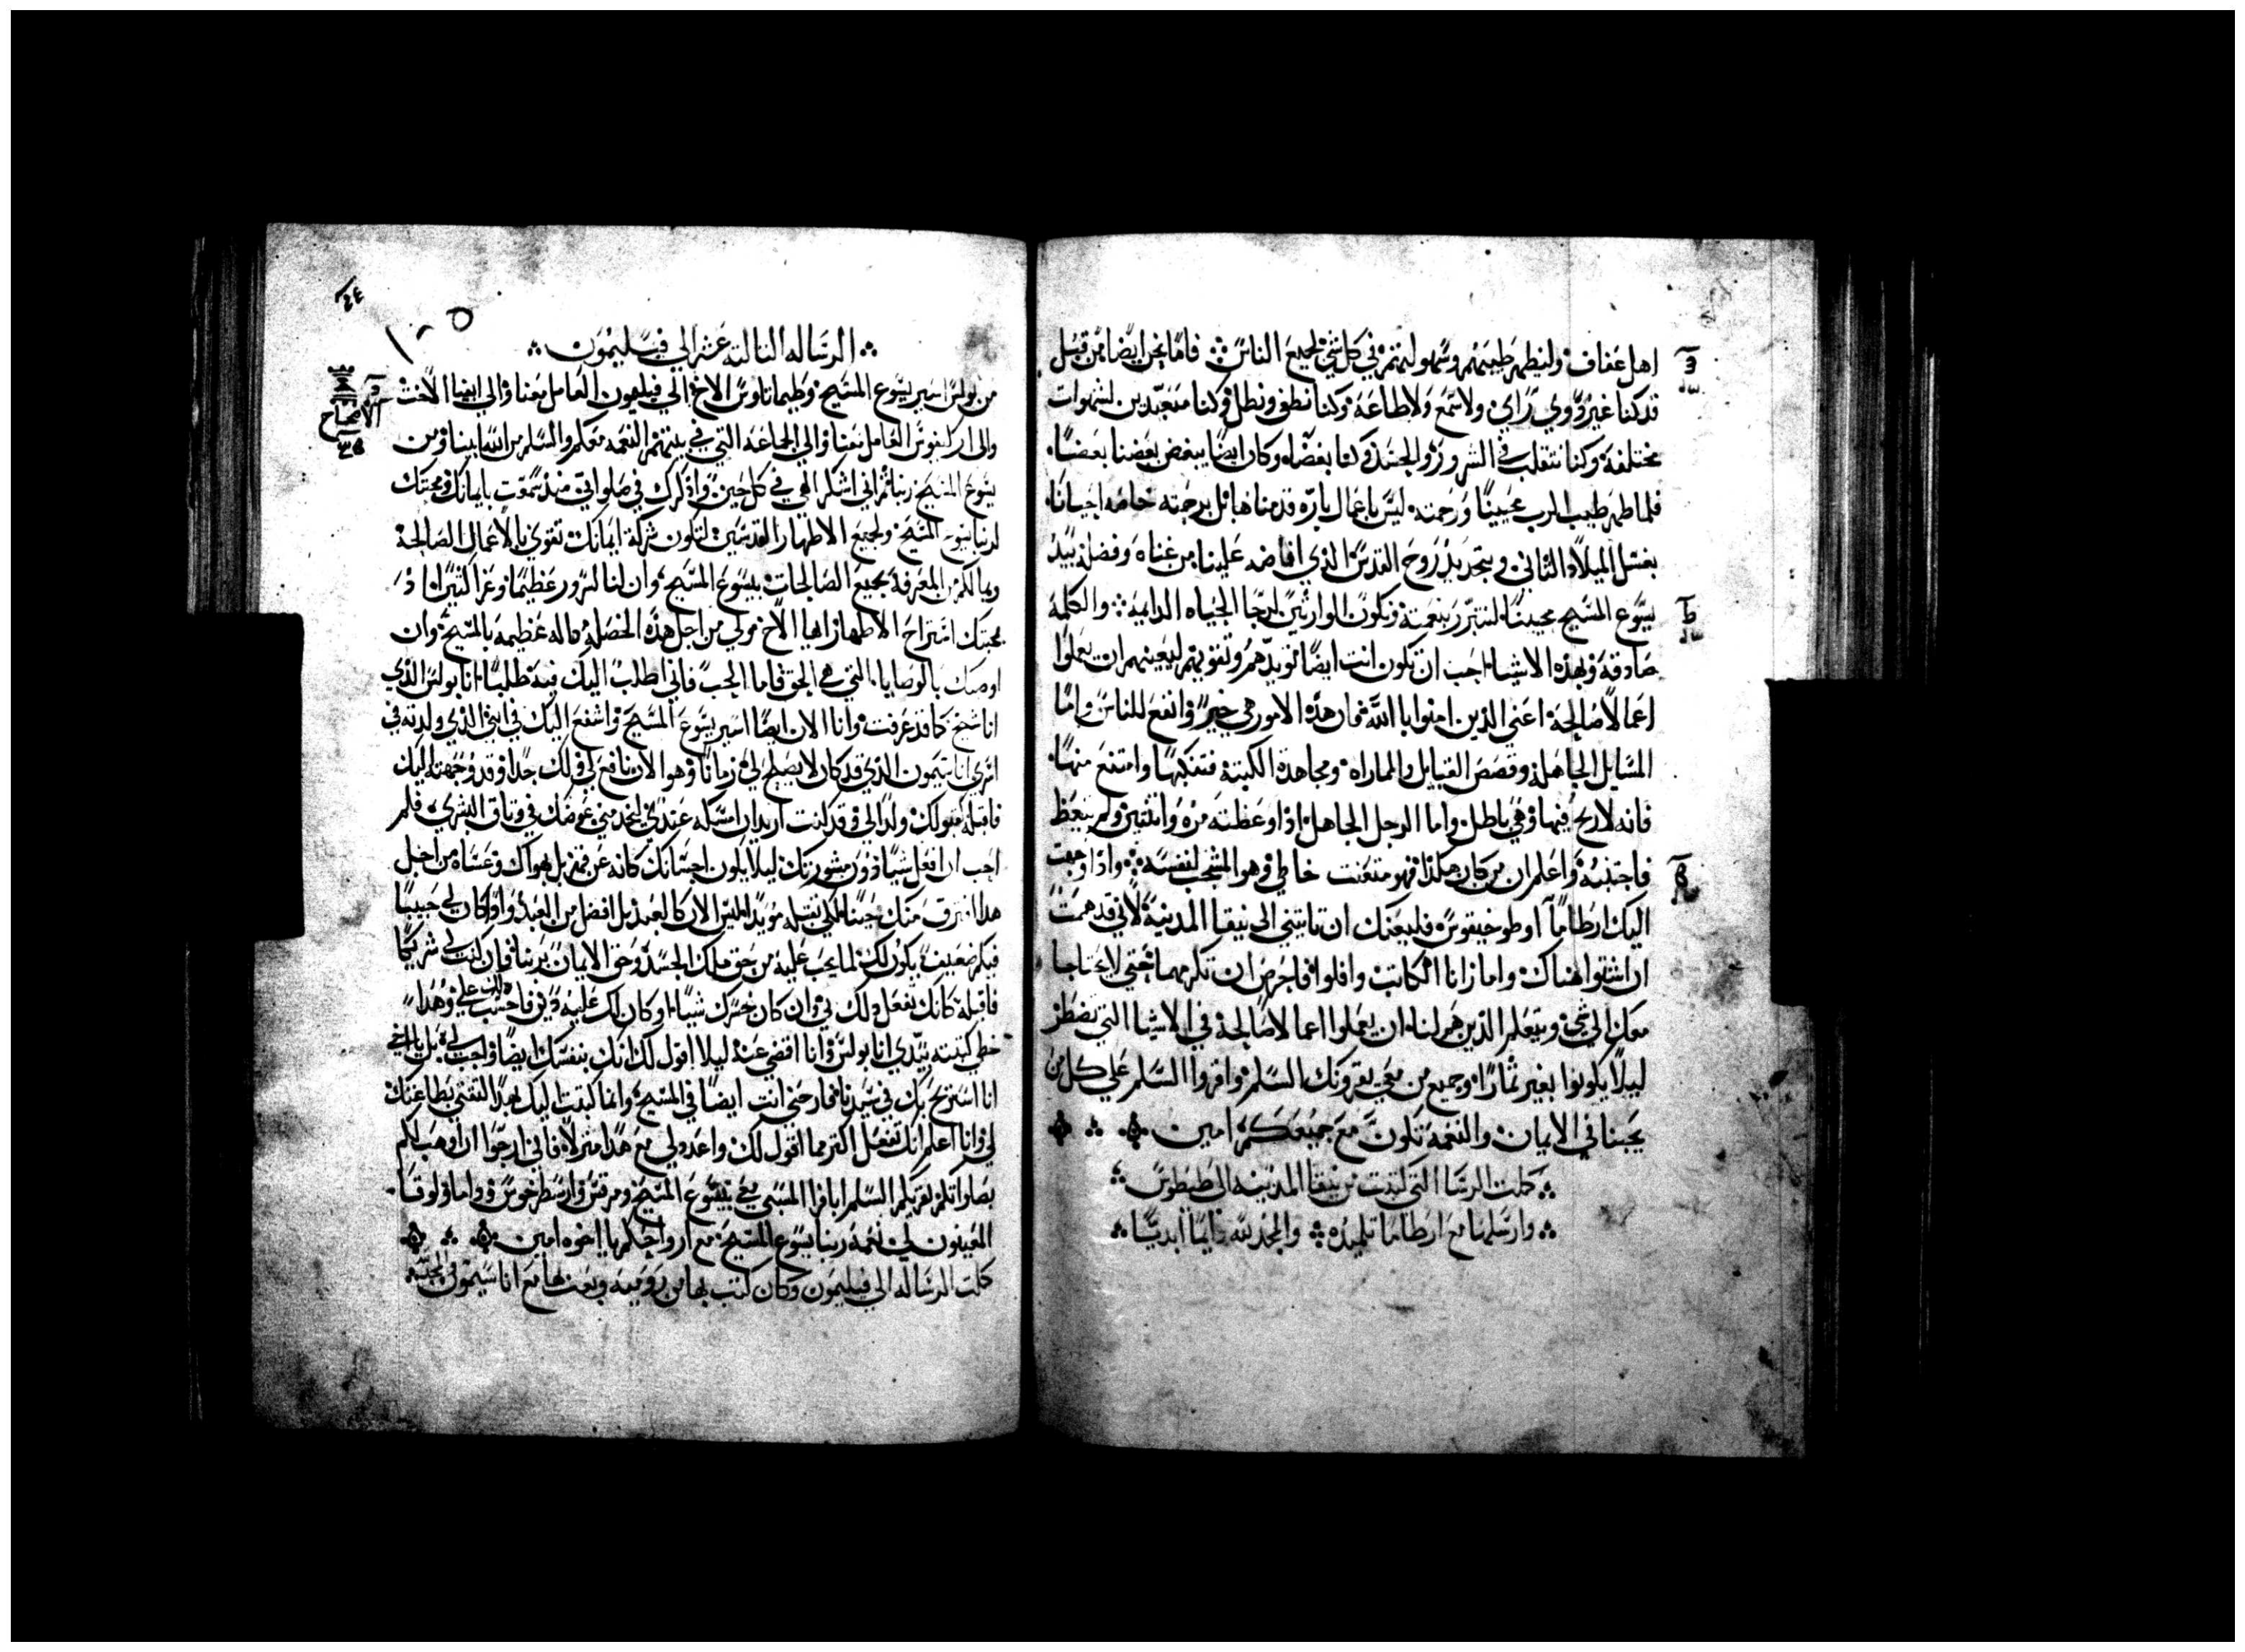 اهل عفاف وليظهر طيبتهم وسهولتهم في كل شي لجميع الناس فاما نحن ايضا من قبل
قد كنا غير ذوي راي ولا سمع ولا طاعة وكنا نطغي ونضل وكنا متعبدين لشهوات
مختلفة وكنا نتقلب في الشرور والحسد وكان ايضا يبغض بعضنا بعضا
فلما ظهر طيب الرب محيينا ورحمته ليس باعمال بارة قدمناها بل برحمته خاصه احيانا
بغسل الميلاد الثاني وبتجديد روح القدس الذي افاضه علينا من غناه وفضله بيد
يسوع المسيح محيينا لنتبرر بنعمته ونكون الوارثين لرجا الحياه الدايمة والكلمة
صادقة وبهذه الاشيا احب ان تكون انت ايضا تويدهم وتقويهم ليعينهم ان يعملوا
اعمالا صالحة اعني الذين امنوا بالله فان هذه الامور هي خير وانفع للناس واما
المسايل الجاهلة وقصص القبايل والمماراه ومجاهدة الكتبة فتنكبها وامتنع منها
فانه لا ربح فيها وهي باطل واما الرجل الجاهل اذا وعظته مرة واثنتين ولم يتعظ
فاجتنبه واعلم ان من كان هكذا فهو متعنت خاطي وهو المشجب لنفسه واذا وجهت
اليك ارطاما او طوخيقوس فليعنك ان تاتيني الى نيقا المدينة لاني قد هممت
ان اشتوا هناك واما زانا الكاتب وافلوا فاحرص ان تكرمهما حتي لا يحتاجا
معك الي شي ويتعلم الذين هم لنا ان يعملوا اعمالا صالحة في الاشيا التي تضطر
ليلا يكونوا بغير ثمار وجميع من معي يقرونك السلم واقروا السلم على كل من
يحبنا في الايمان والنعمة تكون مع جميعكم امين
كملت الرسالة التي كتبت من نيقا المدينه الى طيطوس
وارسلها مع ارطاما تلميذه والحمد لله دايما ابديا
الرساله الثالثة عشر الي فيليمون
من بولس اسير يسوع المسيح وطيماتاوس الاخ الي فيليمون العامل معنا والي افيا الاخت
والى اركيفوس العامل معنا والي الجماعة التي في بيتهم النعمه معكم والسلم من الله ابينا ومن
يسوع المسيح ربنا ثم اني اشكر الهي في كل حين واذكرك في صلواتي منذ سمعت بايمانك ومحبتك
لربنا يسوع المسيح ولجميع الاطهار القديسين لتكون شركة ايمانك تقوي بالاعمال الصالحة
وبما لكم من المعرفة بجميع الصالحات بيسوع المسيح وان لنا لسرور عظيما وعزا كثيرا اذ
محبتك استراح الاطهار ايها الاخ مولي من اجل هذه الخصلة داله عظيمة بالمسيح وان
اوصيك بالوصايا التي هي الحق فاما الحب فاني اطلب اليك فيه طلبا انا بولس الذي
انا شيخ كما قد عرفت وانا الان ايضا اسير يسوع المسيح واشفع اليك في ابني الذي ولدته في
اسري اناسيمون الذي قد كان لا يصلح لي زمانا وهو الان نافع لي ولك جدا وقد وجهته اليك
فاقبله كقبولك ولدا لي وقد كنت اريد ان امسكه عندي ليخدمني عوضك في وثاق البشري فلم
احب ان افعل شيا دون مشورتك ليلا يكون احسانك كانه عن قهر بل بهواك وعساه من اجل
هذا افترق منك حينا لكي تقبله مويدا ليس الان كالعبد بل افضل من العبد واذا كان لي حبيبا
فبكم ضعيف يكون لك لما يجب عليه من حق ملك الجسد وحق الايمان بربنا فان كنت لي شريكا
فاقبله كانك تفعل ذلك بي وان كان خسرك شيا او كان لك عليه دين فاحسب ذلك علي وهذا
خطي كتبته بيدي انا بولس وانا اقضي عنه ليلا اقول لك انك بنفسك ايضا واجب لي بل يا اخي
انا استريح بك في سيدنا فارحني انت ايضا في المسيح وانما كتبت اليك بهذا لثقتي بطاعتك
لي وانا اعلم انك تفعل اكثر مما اقول لك واعدد لي مع هذا منزلا فاني ارجوا ان اوهب لكم
بصلواتكم يقريكم السلم ابافرا المسبي معي بيسوع المسيح ومرقس وارسطرخوس وداما ولوقا
المعينون لي نعمة ربنا يسوع المسيح مع ارواحكم يا اخوه امين
كملت الرساله الي فيليمون وكان كتب بها من رومية وبعث بها مع اناسيمون
الاصحاح